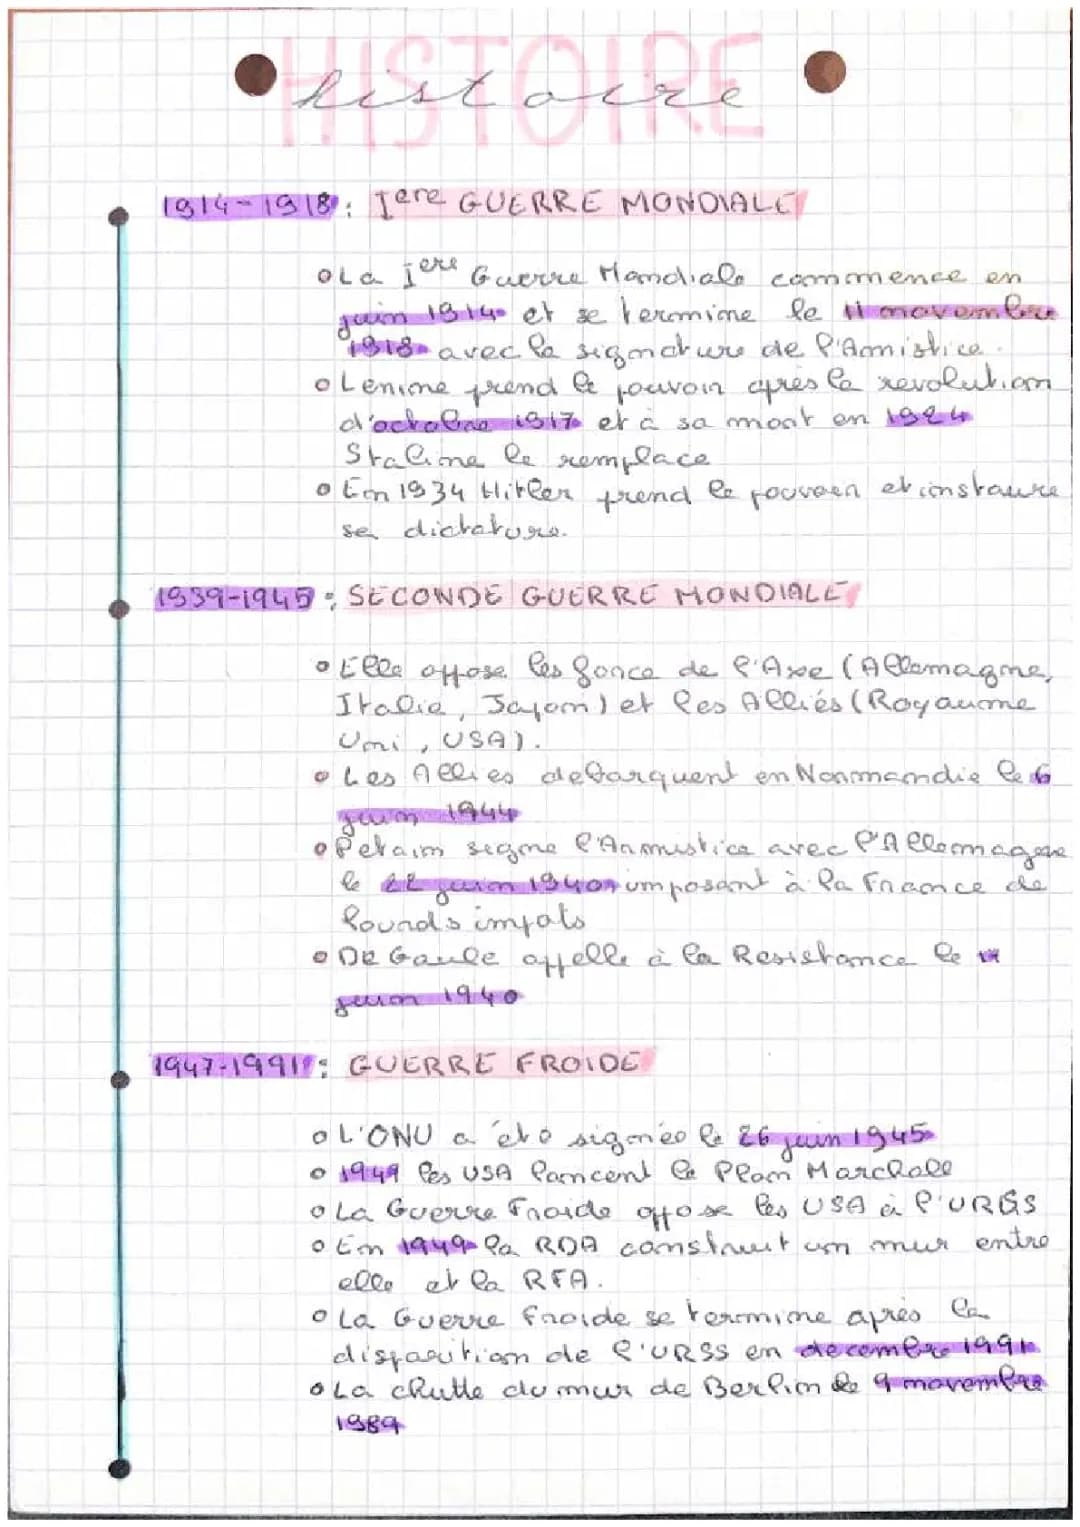 HISTOIRE
histoire
1914-1918: Iere GUERRE MONDIALE
La Iere Guerre Mondiale commence en
juin 1914 et se termine le 11 novembre
1918 avec la signature de l'Armistice.
Lenine prend le pouvoir après la revolution
d'octobre 1917 et à sa mort en 1924
Staline le remplace
En 1934 Hitler prend le pouvoir et instaure
sa dictature.
1939-1945: SECONDE GUERRE MONDIALE
Elle oppose les force de l'Axe (Allemagne,
Italie, Japon) et les Alliés (Royaume
Uni, USA).
Les Allies debarquent en Normandie le 6
juin 1944
Petain signe l'Armistice avec l'Allemagne
le 22 juin 1940, imposant à la France de
lourds impots
De Gaule appelle à la Resistance le
juin 1940
1947-1991: GUERRE FROIDE
L'ONU a été signée le 26 juin 1945
1949 les USA lancent le Plan Marchall
La Guerre Froide oppose les USA à l'URSS
En 1949 la RDA construit un mur entre
elle et la RFA.
La Guerre froide se termine après la
disparition de l'URSS en decembre 1991
La chutte du mur de Berlin le 9 novembre
1989